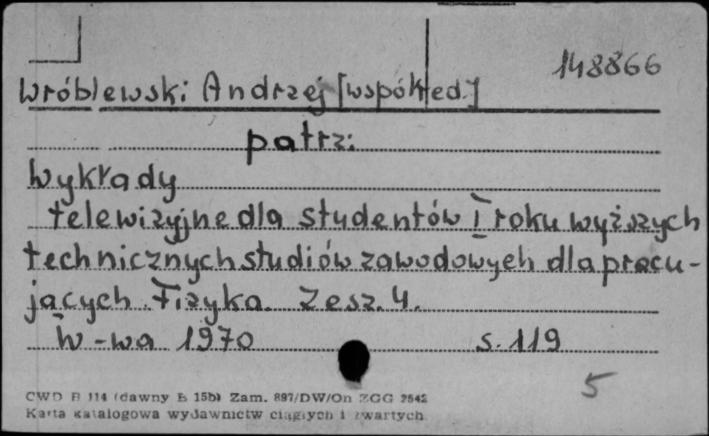 148866
Wróblewski Andrzej [współred.]
patrz:
Wykłady
telewizyjne dla studentów I roku wyższych
technicznych studiów zawodowych dla pracu-
jących. Fizyka. Zesz. 4.
W-wa 1970 s. 119
5
CWD B 114 (dawny B 15b) Zam. 897/DW/On ZGG 2542
Karta katalogowa wydawnictw ciągłych i zwartych